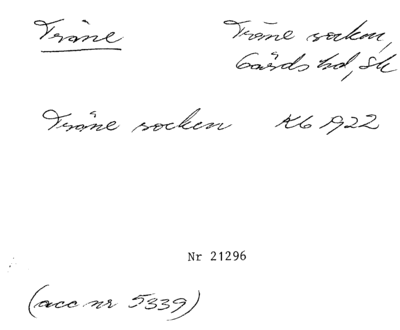 Träne Träne socken,
Gärds hd, Sk
Träne socken Kb 1922
Nr 21296
(acc nr 5339)